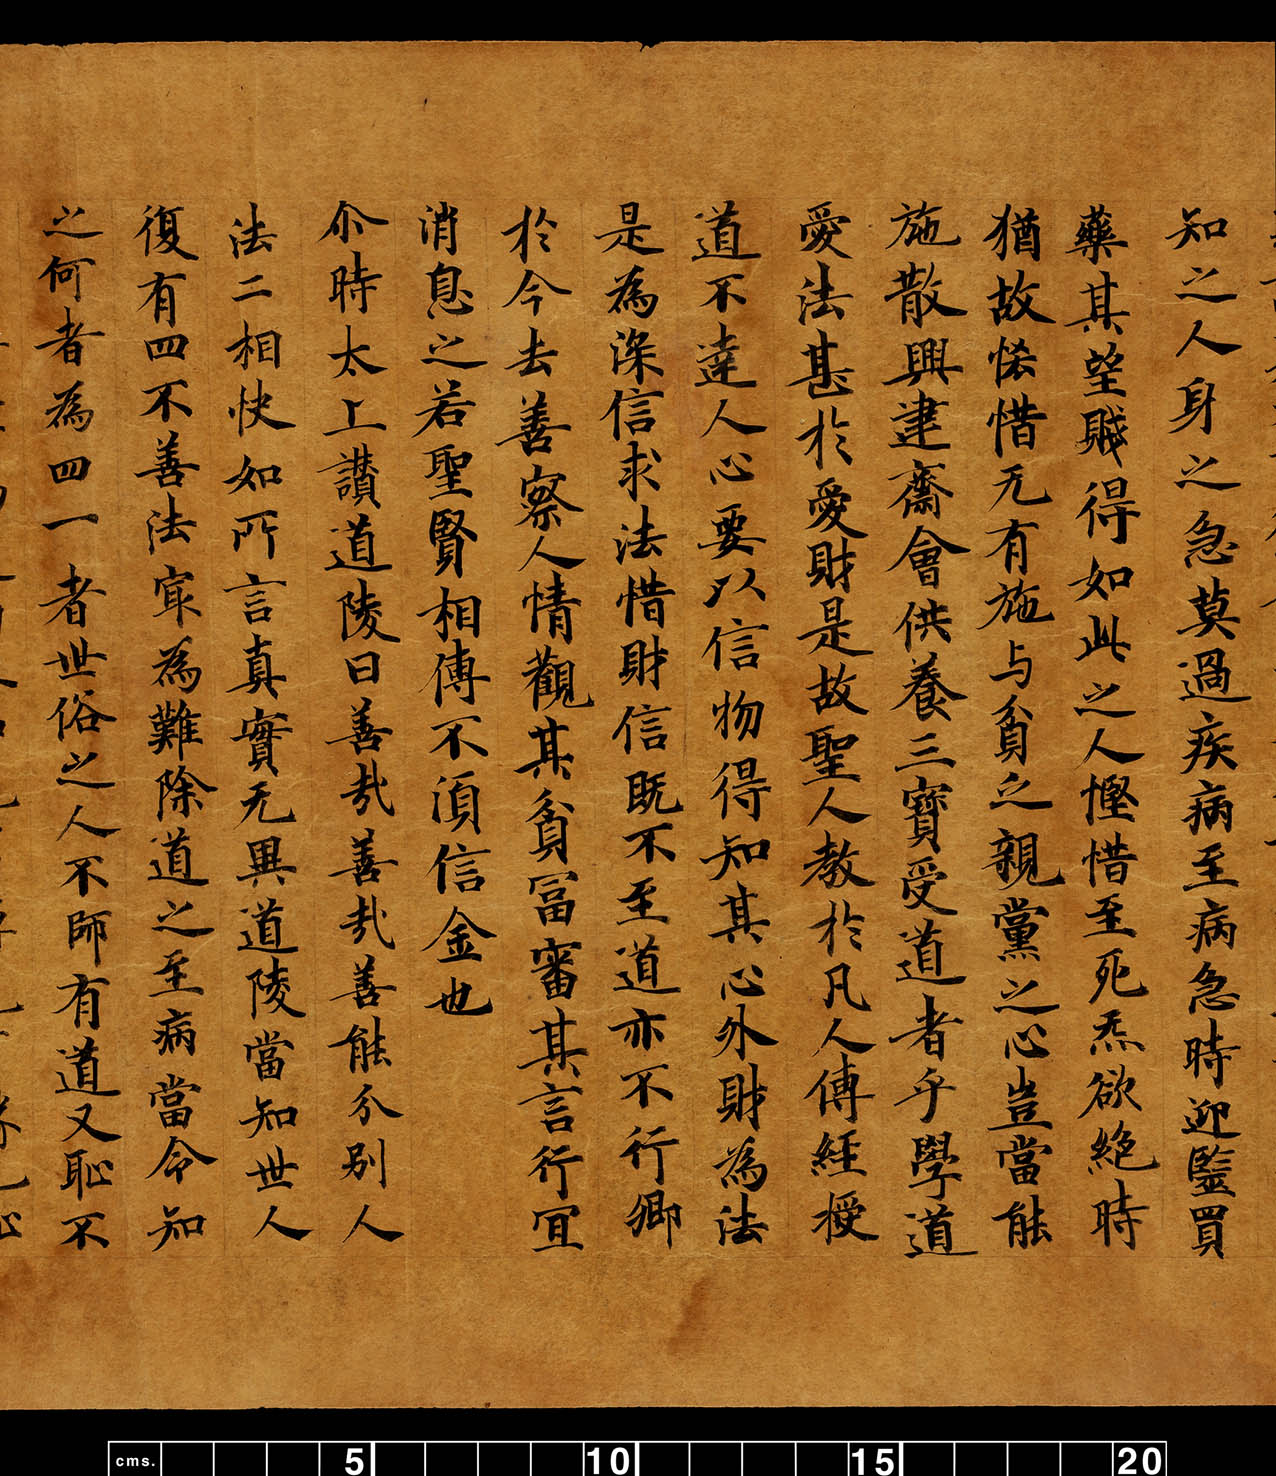 知之人身之急莫過疾病至病急時迎毉買
藥其望賤得如此之人慳惜至死炁欲絕時
猶故恡惜无有施与貧乏親黨之心豈當能
施散興建齋會供養三寶受道者乎學道
愛法甚於愛財是故聖人教於凡人傳經授
道不達人心要以信物得知其心外財為法
是為深信求法惜財信既不至道亦不行卿
於今去善察人情觀其貧冨審其言行冝
消息之若聖賢相傳不湏信金也
尒時太上讃道陵曰善㢤善㢤善能分別人
法二相快如所言真實无異道陵當知世人
復有四不善法㝡為難除道之至病當令知
之何者為四一者世俗之人不師有道又恥不